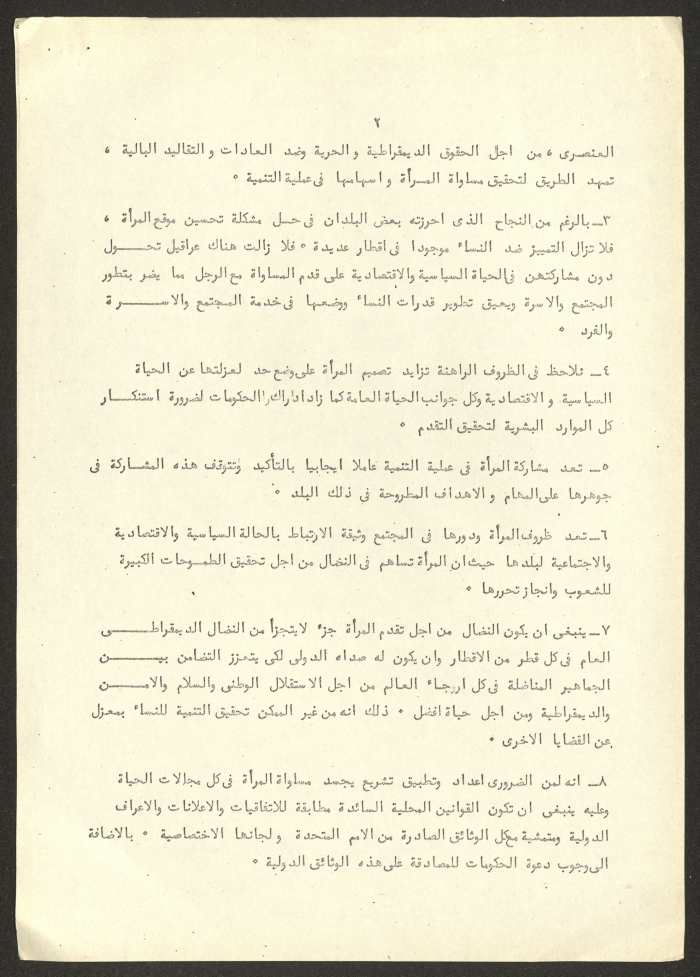 ٢
العنصرى ، من اجل الحقوق الديمقراطية و الحرية وضد العادات و التقاليد البالية ،
تمهد الطريق لتحقيق مساواة المـرأة و اسهامها فى عملية التنمية ٠
٣ـ بالرغم من النجاح الذى احرزته بعض البلدان فى حـل مشكلة تحسين موقع المرأة ،
فلا تزال التمييز ضد النساء موجودا فى اقطار عديدة ٠ فلا زالت هناك عراقيل تحـــول
دون مشاركتهن فى الحياة السياسية والاقتصادية على قدم المساواة مع الرجل مما يضر بتطور
المجتمع والاسرة ويعيق تطوير قدرات النساء ووضعها فى خدمة المجتمع والاســـرة
والفرد ٠
٤ـ نلاحظ فى الظروف الراهنة تزايد تصميم المرأة على وضع حد لعزلتها عن الحياة
السياسية و الاقتصادية وكل جوانب الحياة العامة كما زاد ادراك الحكومات لضرورة استنكـــار
كل الموارد البشرية لتحقيق التقدم ٠
٥ـ تعد مشاركة المرأة فى عملية التنمية عاملا ايجابيا بالتأكيد وتتوقف هذه المشـاركة فى
جوهرها على المهام و الاهداف المطروحة فى ذلك البلد ٠
٦ـ تعد ظروف المرأة ودورها فى المجتمع وثيقة الارتباط بالحالة السياسية والاقتصادية
والاجتماعية لبلدها حيث ان المرأة تساهم فى النضال من اجل تحقيق الطمـوحات الكبيرة
للشعوب وانجاز تحررها ٠
٧ـ ينبغى ان يكون النضال من اجل تقدم المرأة جزء لايتجزأ من النضال الديمقراطـــى
العام فى كل قطر من الاقطار وان يكون له صداه الدولى لكى يتعزز التضامن بيـــن
الجماهير المناضلة فى كل ارجاء العالم من اجل الاستقلال الوطنى والسلام والامـــن
والديمقراطية ومن اجل حياة افضل ٠ ذلك انه من غير الممكن تحقيق التنمية للنساء بمعزل
عن القضايا الاخرى ٠
٨ـ انه لمن الضرورى اعداد وتطبيق تشريع يجسد مساواة المرأة فى كل مجالات الحياة
وعليه ينبغى ان تكون القوانين المحلية السائدة مطابقة للاتفاقيات والاعلانات والاعراف
الدولية ومتمشية مع كل الوثائق الصادرة من الامم المتحدة ولجانها الاختصاصية ٠ بالاضافة
الى وجوب دعوة الحكومات للمصادقة على هذه الوثائق الدولية ٠